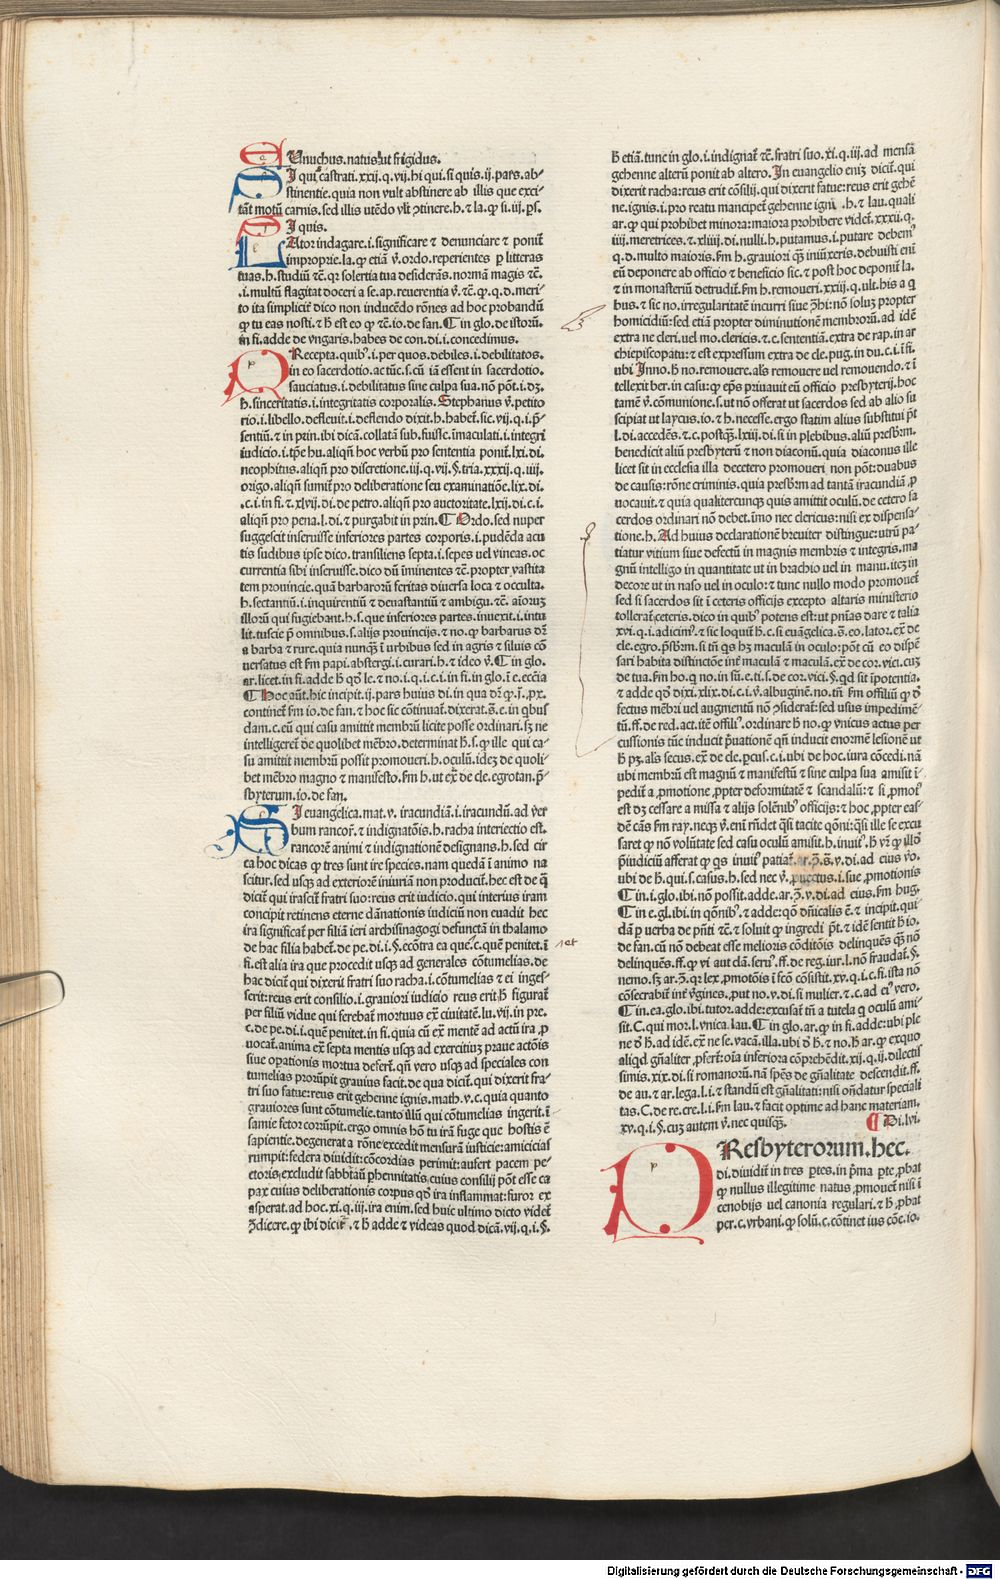 Unuchus.natus.ut frigidus.
I qui castrati.xxii.q.vii.hi qui.si quis.ii.pars.ab-
stinentie.quia non vult abstinere ab illis que exci-
tāt motū carnis.sed illis utēdo vl't ↄtinere.h.⁊ la.ꝙ si.iii.ps.
I quis.
Ator indagare.i.significare ⁊ denunciare ⁊ ponit̄
improprie.la.ꝙ etiā v̄.ordo.reperientes p litteras
tuas.h.studiū ⁊c̄.qr solertia tua desiderās.normā magis ⁊c̄.
.i.multū flagitat doceri a se.ap.reuerentia v̄.⁊c̄.ꝙ.q.d.meri-
to ita simplicit̄ dico non inducēdo rōnes ad hoc probandū
ꝙ tu eas nosti.⁊ h̄ est eo ꝙ ⁊c̄.io.de fan.¶ in glo.de istorū.
in fi.adde de vngaris.habes de con.di.i.concedimus.
Recepta.quibꝰ.i.per quos.debiles.i.debilitatos.
in eo sacerdotio.ac tūc.s.cū iā essent in sacerdotio.
sauciatus.i.debilitatus sine culpa sua.nō pōt.i.dȝ.
h.sinceritatis.i.integritatis corporalis.Stephanus v̄.petito
rio.i.libello.defleuit.i.deflendo dixit.h.habet̄.sic.vii.q.i.p̄-
sentiū.⁊ in prin.ibi dicā.collatā sub.fuisse.īmaculati.i.integri
iudicio.i.tp̄e hu.aliqn̄ hoc verbū pro sententia ponit̄.lxi.di.
neophitus.aliqn̄ pro discretione.iii.q.vii.§.tria.xxxii.q.iiii.
origo.aliqn̄ sumit̄ pro deliberatione seu examinatiōe.lix.di.
.c.i.in fi.⁊ xlvii.di.de petro.aliqn̄ pro auctoritate.lxii.di.c.i.
aliqn̄ pro pena.l.di.⁊ purgabit in prin.¶ Ordo.sed nuper
suggescit inseruisse inferiores partes corporis.i.pudēda acu
tis sudibus ipse dico.transiliens septa.i.sepes vel vineas.oc
currentia sibi inseruisse.dico dū īminentes ⁊c̄.propter vastita
tem prouincie.quā barbarorū feritas diuersa loca ⁊ occulta.
h.sectantiū.i.inquirentiū ⁊ deuastantiū ⁊ ambigu.⁊c̄.aīorum
illorū qui fugiebant.h.s.que inferiores partes.inuexit.i.intu
lit.tuscie p̄ omnibus.s.alijs prouincijs.⁊ no.ꝙ barbarus dr̄
a barba ⁊ rure.quia nunqȝ i urbibus sed in agris ⁊ siluis cō
uersatus est fm papi.abstergi.i.curari.h.⁊ ideo v̄.¶ in glo.
ar.licet.in fi.adde h̄ qd' le.⁊ no.i.q.i.c.i.in fi.in glo.i e.eccīa
¶ Hoc aūt.hic incipit.ii.pars huius di.in qua dr̄.ꝙ.m̄.px.
continet̄ fm io.de fan.⁊ hoc sic cōtinuat̄.dixerat.s̄.e.in qbus
dam.c.eū qui casu amittit membrū licite posse ordinari.sȝ ne
intelligeret̄ de quolibet mēbro.determinat h̄.s.ꝙ ille qui ca-
su amittit membrū possit promoueri.h.oculū.ideȝ de quoli-
bet mēbro magno ⁊ manifesto.fm h.ut ex̄.de cle.egrotan.p̄-
sbyterum.io.de fan.
I euangelica.mat.v.iracundiā.i.iracundū.ad ver
bum rancor̄.⁊ indignatōis.h.racha interiectio est.
rancorē animi ⁊ indignationē designans.h.sed cir
ca hoc dicas ꝙ tres sunt ire species.nam quedā ī animo na
scitur.sed usqȝ ad exteriorē iniuriā non producit̄.hec est de q̄
dicit̄ qui irascit̄ fratri suo:reus erit iudicio.qui interius iram
concipit retinens eterne dānationis iudiciū non euadit hec
ira significat̄ per filiā ieri archisinagogi defunctā in thalamo
de hac filia habet̄.de pe.di.i.§.ecōtra ea que.c.quē penitet.ī
fi.est alia ira que procedit usqȝ ad generales cōtumelias.de
hac dicit̄ qui dixerit fratri suo racha.i.cōtumelias ⁊ ei inges-
serit:reus erit consilio.i.grauiori iudicio reus erit h̄ figurat̄
per filiū vidue qui ferebat̄ mortuus ex ciuitate.lu.vii.in pre.
c.de pe.di.i.quē penitet.in fi.quia cū ex mente ad actū ira p
uocat̄.anima ex septa mentis usqȝ ad exercitiuȝ praue actōis
siue opationis mortua defert̄.qn̄ vero usqȝ ad speciales con
tumelias prorūpit grauius facit.de qua dicit̄.qui dixerit fra-
tri suo fatue:reus erit gehenne ignis.math.v.c.quia quanto
grauiores sunt cōtumelie.tanto illū qui cōtumelias ingerit.i
famie fetor corrūpit.ergo omnis hō tu irā fuge que hostis ē
sapientie.degenerat a rōne excedit mensurā iusticie:amicicias
rumpit:federa diuidit:cōcordias perimit:aufert pacem pe-
ctoris.excludit sabbtaū phennitatis.cuius consilij pōt esse ca
pax cuius deliberationis corpus qd' ira inflammat:furor ex
asperat.ad hoc.xi.q.iii.ira enim.sed huic ultimo dicto videt̄
ↄdicere.ꝙ ibi dicit̄.⁊ h̄ adde ⁊ videas quod dicā.vii.q.i.§.
h̄ etiā.tunc in glo.i.indignat̄ ⁊c̄.fratri suo.xi.q.iii.ad mensā
gehenne alterū ponit ab altero.In euangelio eniȝ dicit̄.qui
dixerit racha:reus erit cōsilij.qui dixerit fatue:reus erit gehē
ne.ignis.i.pro reatu mancipet̄ gehenne igni .h.⁊ lau.quali
ar.ꝙ qui prohibet minora:maiora prohibere videt̄.xxxii.q.
iiii.meretrices.⁊.xliiii.di.nulli.h.putamus.i.putare debemꝰ
q.d.multo maioris.fm h.grauiori qȝ iniūxeris.debuisti enī
eū deponere ab officio ⁊ beneficio sic.⁊ post hoc deponit̄ la.
⁊ in monasteriū detrudit̄.fm h.remoueri.xxiii.q.ult.his a q
bus.⁊ sic no.irregularitatē incurri siue ↄhi:nō soluȝ propter
homicidiū:sed etiā propter diminutionē membrorū.ad idē
extra ne cleri.uel mo.clericis.⁊.c.sententiā.extra de rap.in ar
chiepiscopatu:⁊ est expressum extra de cle.pug.in du.c.i.ī fi.
ubi Inno.h̄ no.remouere.als remouere uel remouendo.⁊ ī
tellexit ber.in casu:ꝙ ep̄s priuauit eū officio presbyterij.hoc
tamē v̄.cōmunione.s.ut nō offerat ut sacerdos sed ab alio su
scipiat ut laycus.io.⁊ h.necesse.ergo statim alius substitui p̄t
l.di.accedēs.⁊.c.postqȝ.lxiii.di.si in plebibus.aliū presb̄rm.
benedicit aliū presbyterū ⁊ non diaconū.quia diaconus ille
licet sit in ecclesia illa decetero promoueri non pōt:duabus
de causis:rōne criminis.quia presb̄rm ad tantā iracundiā p
uocauit.⁊ quia qualitercunqȝ quis amittit oculū.de cetero sa
cerdos ordinari nō debet.īmo nec clericus:nisi ex dispensa-
tione.h.Ad huius declarationē breuiter distingue:utrū pa-
tiatur vitium siue defectū in magnis membris ⁊ integris.ma
gnū intelligo in quantitate ut in brachio uel in manu.iteȝ in
decore ut in naso uel in oculo:⁊ tunc nullo modo promouet̄
sed si sacerdos sit ī ceteris officijs excepto altaris ministerio
tollerat̄.ceteris.dico in quibꝰ potens est:ut pn̄ias dare ⁊ talia
xvi.q.i.adicimꝰ.⁊ sic loquit̄ h̄.c.si euāgelica.s̄.eo.lator.ex̄.de
cle.egro.p̄sb̄rm.si tn̄ qs hȝ maculā in oculo:pōt cū eo dispē
sari habita distinctōe int̄ maculā ⁊ maculā.ex̄.de cor.vict.cuȝ
de tua.fm ho.q̄ no.in sū.e.ti.s̄.de cor.vici.§.qd sit īpotentia.
⁊ adde qd' dixi.xlix.di.c.i.v̄.albuginē.no.tn̄ fm offiliū ꝙ d'
fectus mēbri uel augmentū nō ↄsiderat̄:sed usus impedimē-
tū.ff.de red.act.itē offiliꝰ.ordinare h̄ no.ꝙ vnicus actus per
cussionis tūc inducit p̄uationē qn̄ inducit enormē lesionē ut
h̄ pȝ.als secus.ex̄.de cle.pcus.c.i.ubi de hoc.iura cōcedi.nā
ubi membrū est magnū ⁊ manifestū ⁊ sine culpa sua amisit ī-
pedit̄ a pmotione ppter deformitatē ⁊ scandalū:⁊ si pmotꝰ
est dȝ cessare a missa ⁊ alijs solēnibꝰ officijs:⁊ hoc ppter eas-
dē cās fm ray.neqȝ v̄.enī rn̄det qsi tacite qōni:qsi ille se excu
saret ꝙ nō volūtate sed casu oculū amisit.h.inuitꝰ.h̄ vr̄ ꝙ illō
p̄iudiciū afferat ꝙ qs inuitꝰ patiat̄.ar.s̄.v.di.ad eius vo.
ubi de h̄.qui.s.casus.h.sed nec v̄.puectus.i.sue pmotionis
¶ in.i.glo.ibi.nō possit.adde.ar.s̄.v.di.ad eius.fm hug.
¶ in e.gl.ibi.in qōnibꝰ.⁊ adde:qō dn̄icalis ē.⁊ incipit.qui-
dā p verba de pn̄ti ⁊c̄.⁊ soluit ꝙ ingredi p̄t.⁊ idē sentit h̄ io.
de fan.cū nō debeat esse melioris cōditōis delinquēs qȝ nō
delinquēs.ff.ꝙ vi aut clā.seruꝰ.ff.de reg.iur.l.nō fraudat̄.§.
nemo.sȝ ar.s̄.qr lex.pmotōis ī scō cōsistit.xv.q.i.c.fi.ista nō
cōsecrabit̄ int̄ v̄gines.put no.v.di.si mulier.⁊.c.ad eiꝰ vero.
¶ in.ea.glo.ibi.tutor.adde:excusat̄ tn̄ a tutela q oculū ami-
sit.C.qui mor.l.vnica.lau.¶ in glo.ar.ꝙ in fi.adde:ubi ple
ne d' h̄.ad idē.ex̄ ne se.vacā.illa.ubi d' h̄.⁊ no.h̄ ar.ꝙ exquo
aliqd gn̄aliter pfert̄:oīa inferiora cōprehēdit.xii.q.ii.dilectis
simis.xix.di.si romanorū.nā sp̄es de gn̄alitate descendit.ff.
de au.⁊ ar.lega.l.i.⁊ standū est gn̄alitati:nisi on̄datur speciali
tas.C.de re.cre.l.i.fm lau.⁊ facit optime ad hanc materiam.
xv.q.i.§.cuȝ autem v̄.nec quisqȝ. ¶ Di.lvi.
Resbyterorum.hec.
di.diuidit̄ in tres ptes.in p̄ma pte pbat
ꝙ nullus illegitime natus pmouet̄ nisi ī
cenobijs uel canonia regulari.⁊ h̄ pbat
per.c.vrbani.ꝙ solū.c.cōtinet ius cōe.io.
Digitalisierung gefördert durch die Deutsche Forschungsgemeinschaft - DFG